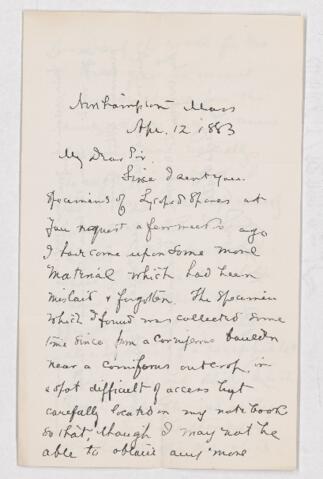 Northampton Mass
Apr. 12 1883
My Dear Sir.
Since I sent you
specimens of Lycopod Spores at
your request a few weeks ago
I have come upon some more
material which had been
mislaid & forgotten. The specimen
which I found was collected some
time since from a corniferous boulder
near a corniferous outcrop, in
a spot difficult of access but
carefully located in my note book
so that, though I may not be
able to obtain any more